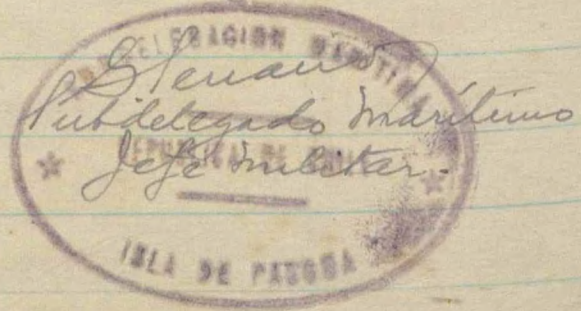 SUBDELEGACION MARITIMA
Subdelegado Marítimo
REPUBLICA DE CHILE
Jefe militar.
ISLA DE PASCUA